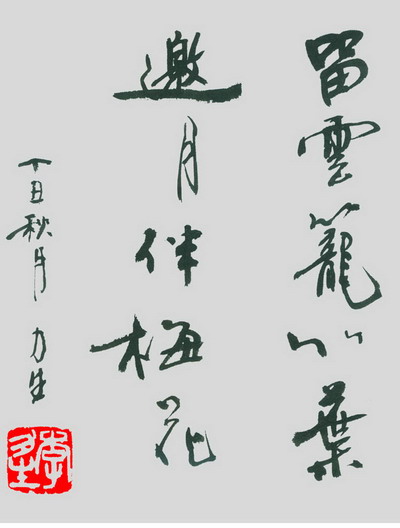 留雲籠竹葉
邀月伴梅花
丁丑秋月 力生